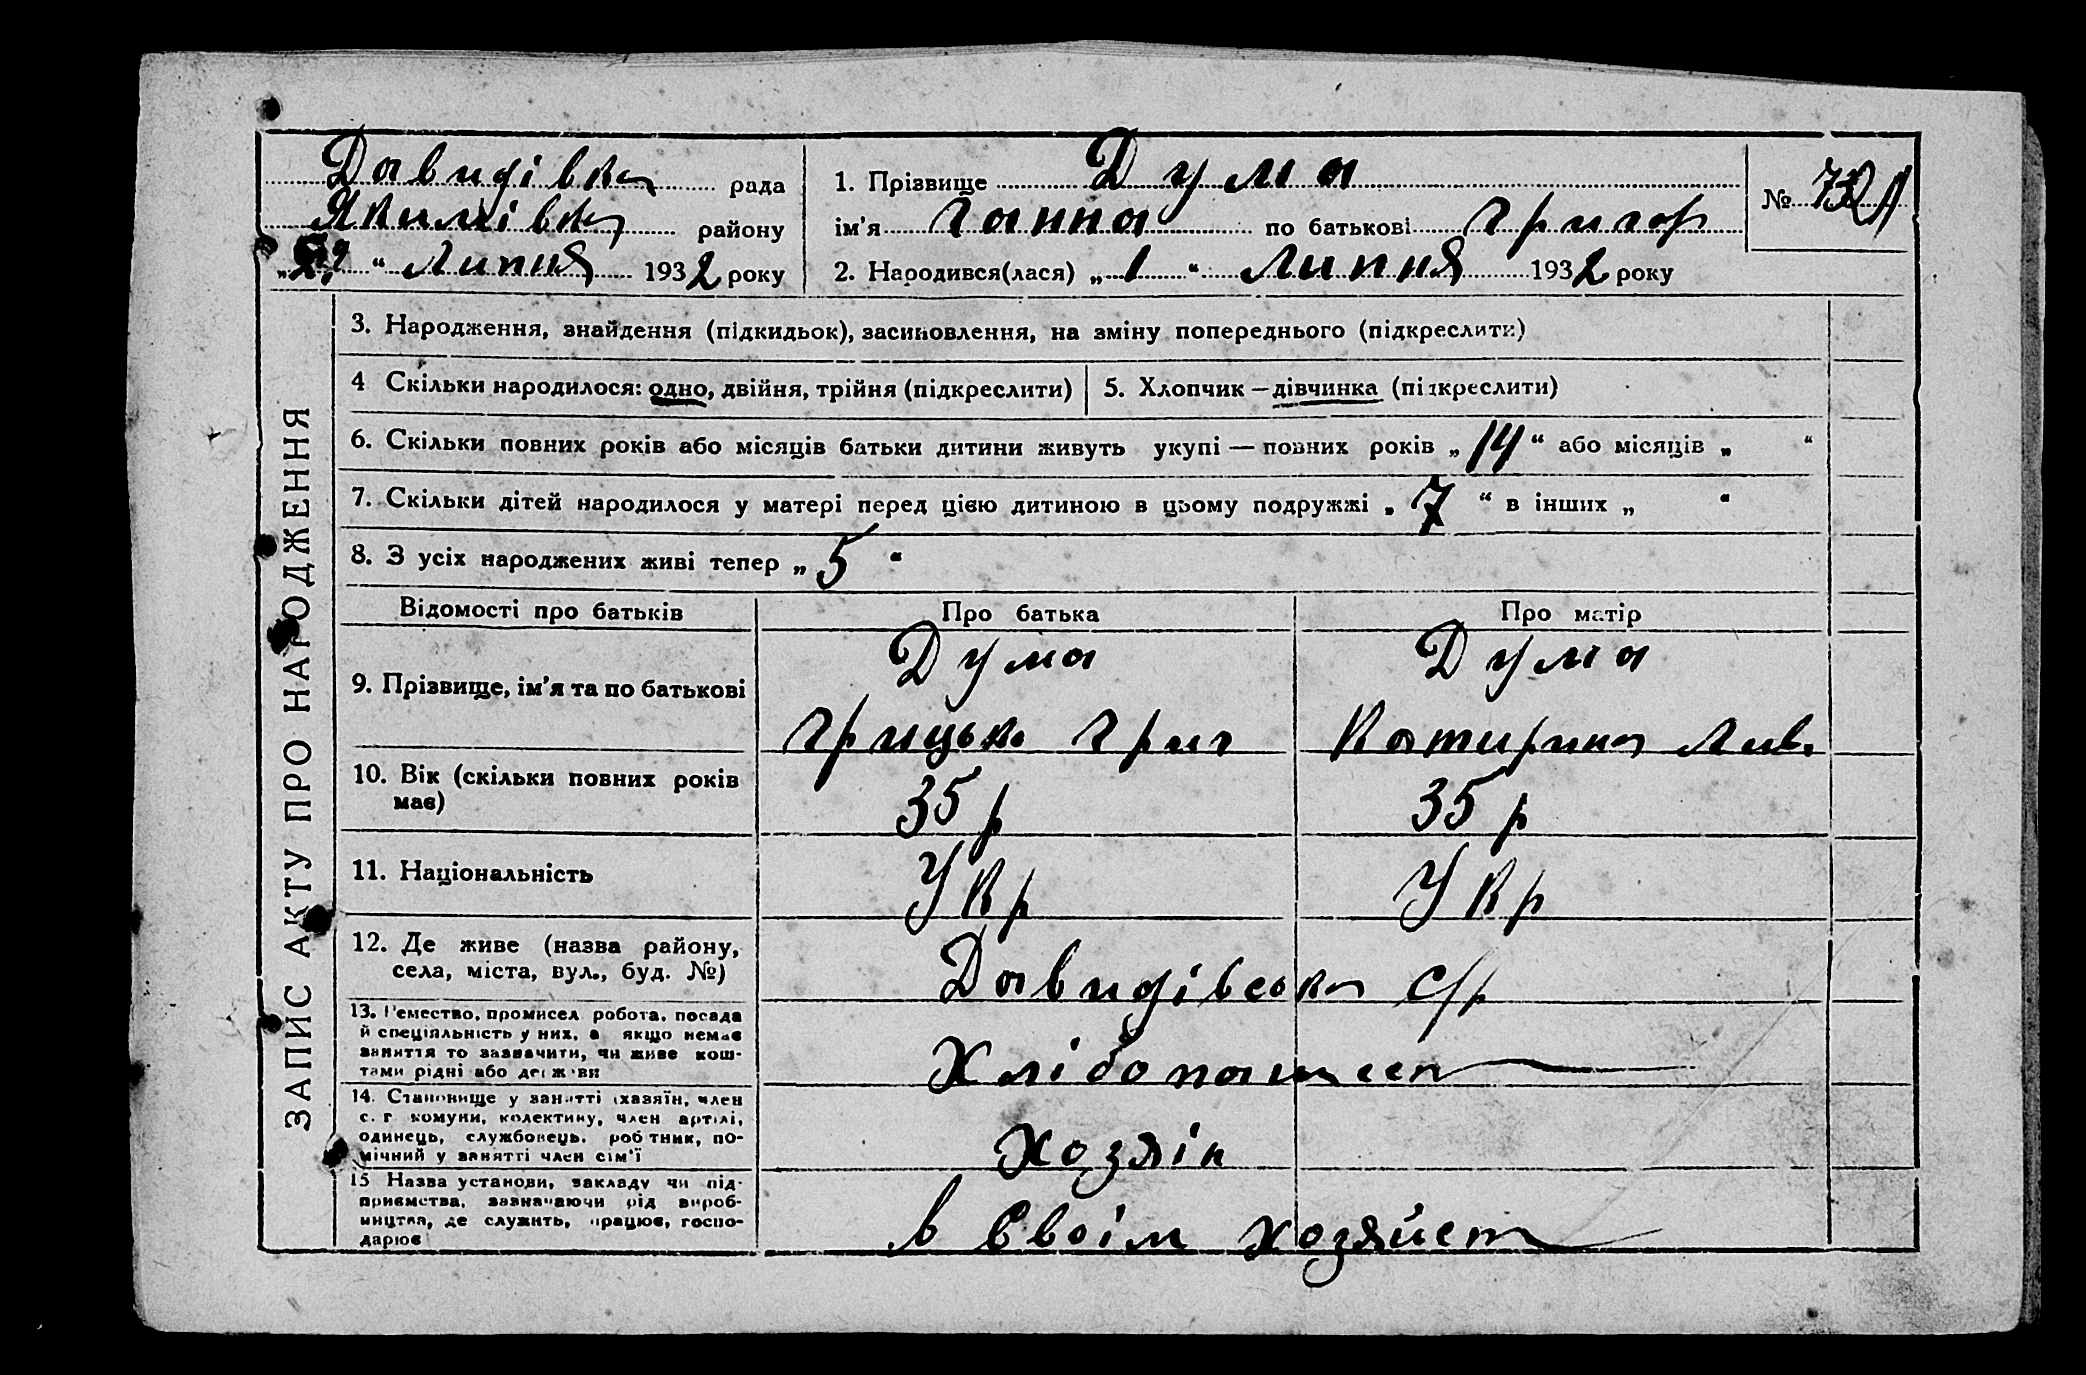 ЗАПИС АКТУ ПРО НАРОДЖЕННЯ
Давидівка рада
Якимівка району
„ “ Липня 1932 року
1. Прізвище Дума
ім'я Ганна по батькові Григор
2. Народився(лася) „ 1 “ Липня 1932 року
№
3. Народження, знайдення (підкидьок), засиновлення, на зміну попереднього (підкреслити)
4 Скільки народилося: одно, двійня, трійня (підкреслити)
5. Хлопчик — дівчинка (підкреслити)
6. Скільки повних років або місяців батьки дитини живуть укупі — повних років „ 14 “ або місяців „ “
7. Скільки дітей народилося у матері перед цією дитиною в цьому подружжі „ 7 “ в інших „ “
8. З усіх народжених живі тепер „ 5 “
Відомості про батьків Про батька Про матір
9. Прізвище, ім'я та по батькові
Дума
Грицько Григ
Дума
Катирина Лив.
10. Вік (скільки повних років
має)
35 р
35 р
11. Національність
Укр
Укр
12. Де живе (назва району,
села, міста, вул., буд. №)
Давидівська с/р
13. Ремество, промисел робота, посада
й спеціяльність у них, а якщо немає
заняття то зазначити, чи живе кош-
тами рідні або держави
Хлібопашест
14. Становище у занятті (хазяїн, член
с. г. комуни, колективу, член артілі,
одинець, службовець, робітник, по-
мічний у занятті член сім'ї
Хозяін
15 Назва установи, закладу чи під-
приємства, зазначаючи рід вироб-
ництва, де служить, працює, госпо-
дарює
в Своім хозяйст